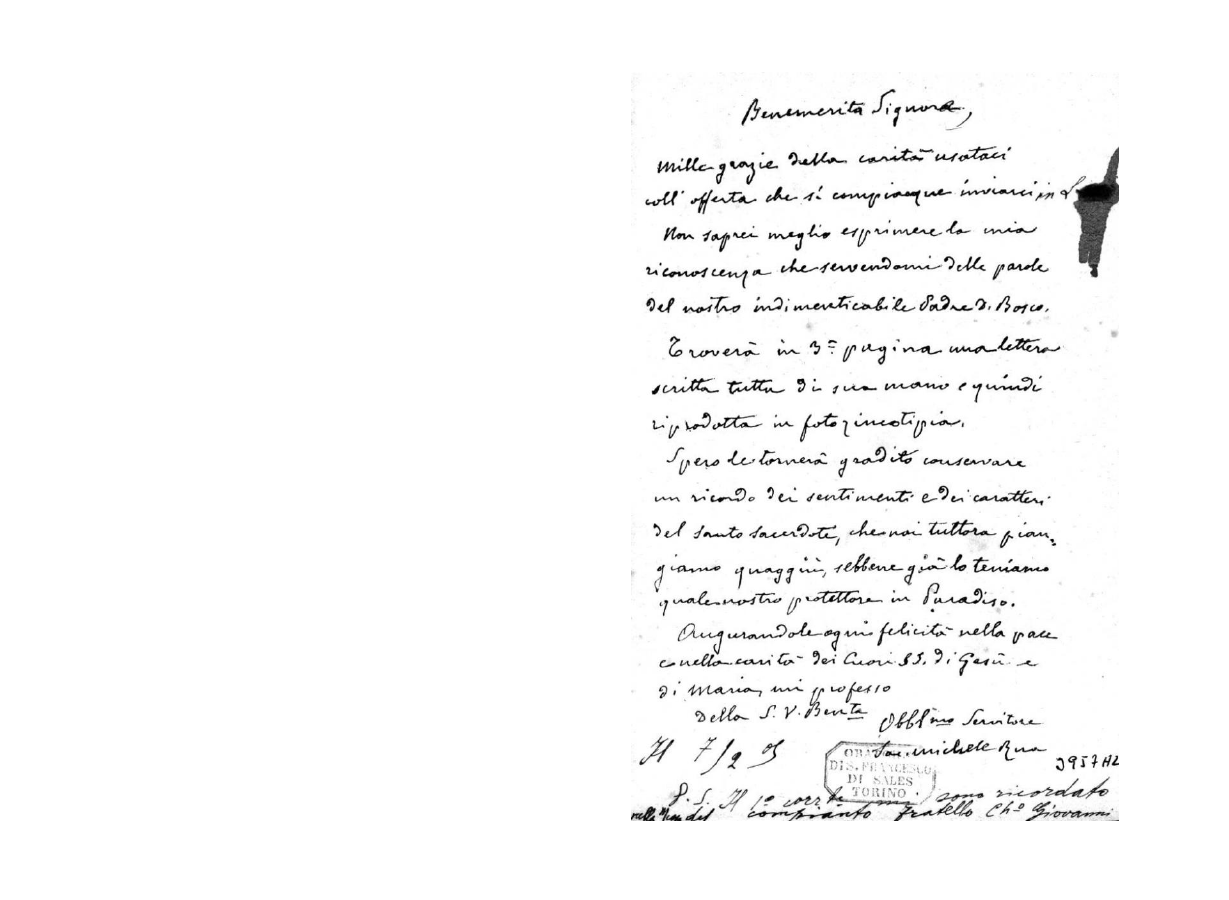 Benemerita Signora,
Mille grazie della carità usataci
coll'offerta che si compiacque inviarci in L
Non saprei meglio esprimere la mia
riconoscenza che servendomi delle parole
del nostro indimenticabile Padre D. Bosco.
Troverà in 3ª pagina una lettera
scritta tutta di sua mano e quindi
riprodotta in fotozincotipia.
Spero le tornerà gradito conservare
un ricordo dei sentimenti e dei caratteri
del santo sacerdote, che noi tuttora pian-
giamo quaggiù, sebbene già lo teniamo
quale nostro protettore in Paradiso.
Augurandole ogni felicità nella pace
e nella carità dei Cuori SS. di Gesù e
di Maria, mi professo
Della S. V. Benta
Obblmo Servitore
Sac. Michele Rua
Il 7/2 05
ORATORIO
DI S. FRANCESCO
DI SALES
TORINO
3957A2
P. S. Il 1º corrte mi sono ricordato
del compianto fratello Chº Giovanni